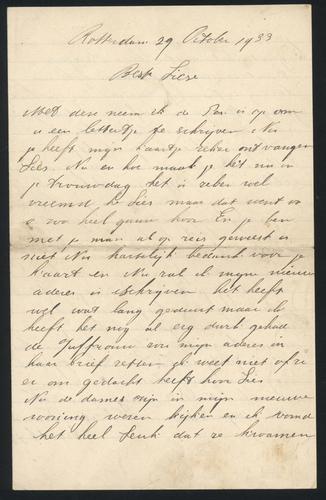 Rotterdam 29 October 1933
Beste Liese
Met deze neem ik de Pen is op om
u een lettertje te schrijven Nu
je heeft mijn kaartje zeker ontvangen
Lies. Nu en hoe maak je het nu in
je Trouwdag het is zeker wel
vreemd he Lies maar dat went
e zoo heel gauw hoor En je ben
met je man al op reis geweest is
niet Nu hartelijk bedankt voor je
kaart en Nu zal ik mijn nieuwe
adres is schrijven het heeft
wel wat lang geduurt maar ik
heeft het nog al erg druk gehad
de Juffrouw zou mijn adres in
haar brief zetten ik weet niet of ze
er om gedacht heeft hoor Lies
Nu de dames zijn in mijn nieuwe
wooning weren kijken en ik vond
het heel Leuk dat ze kwamen